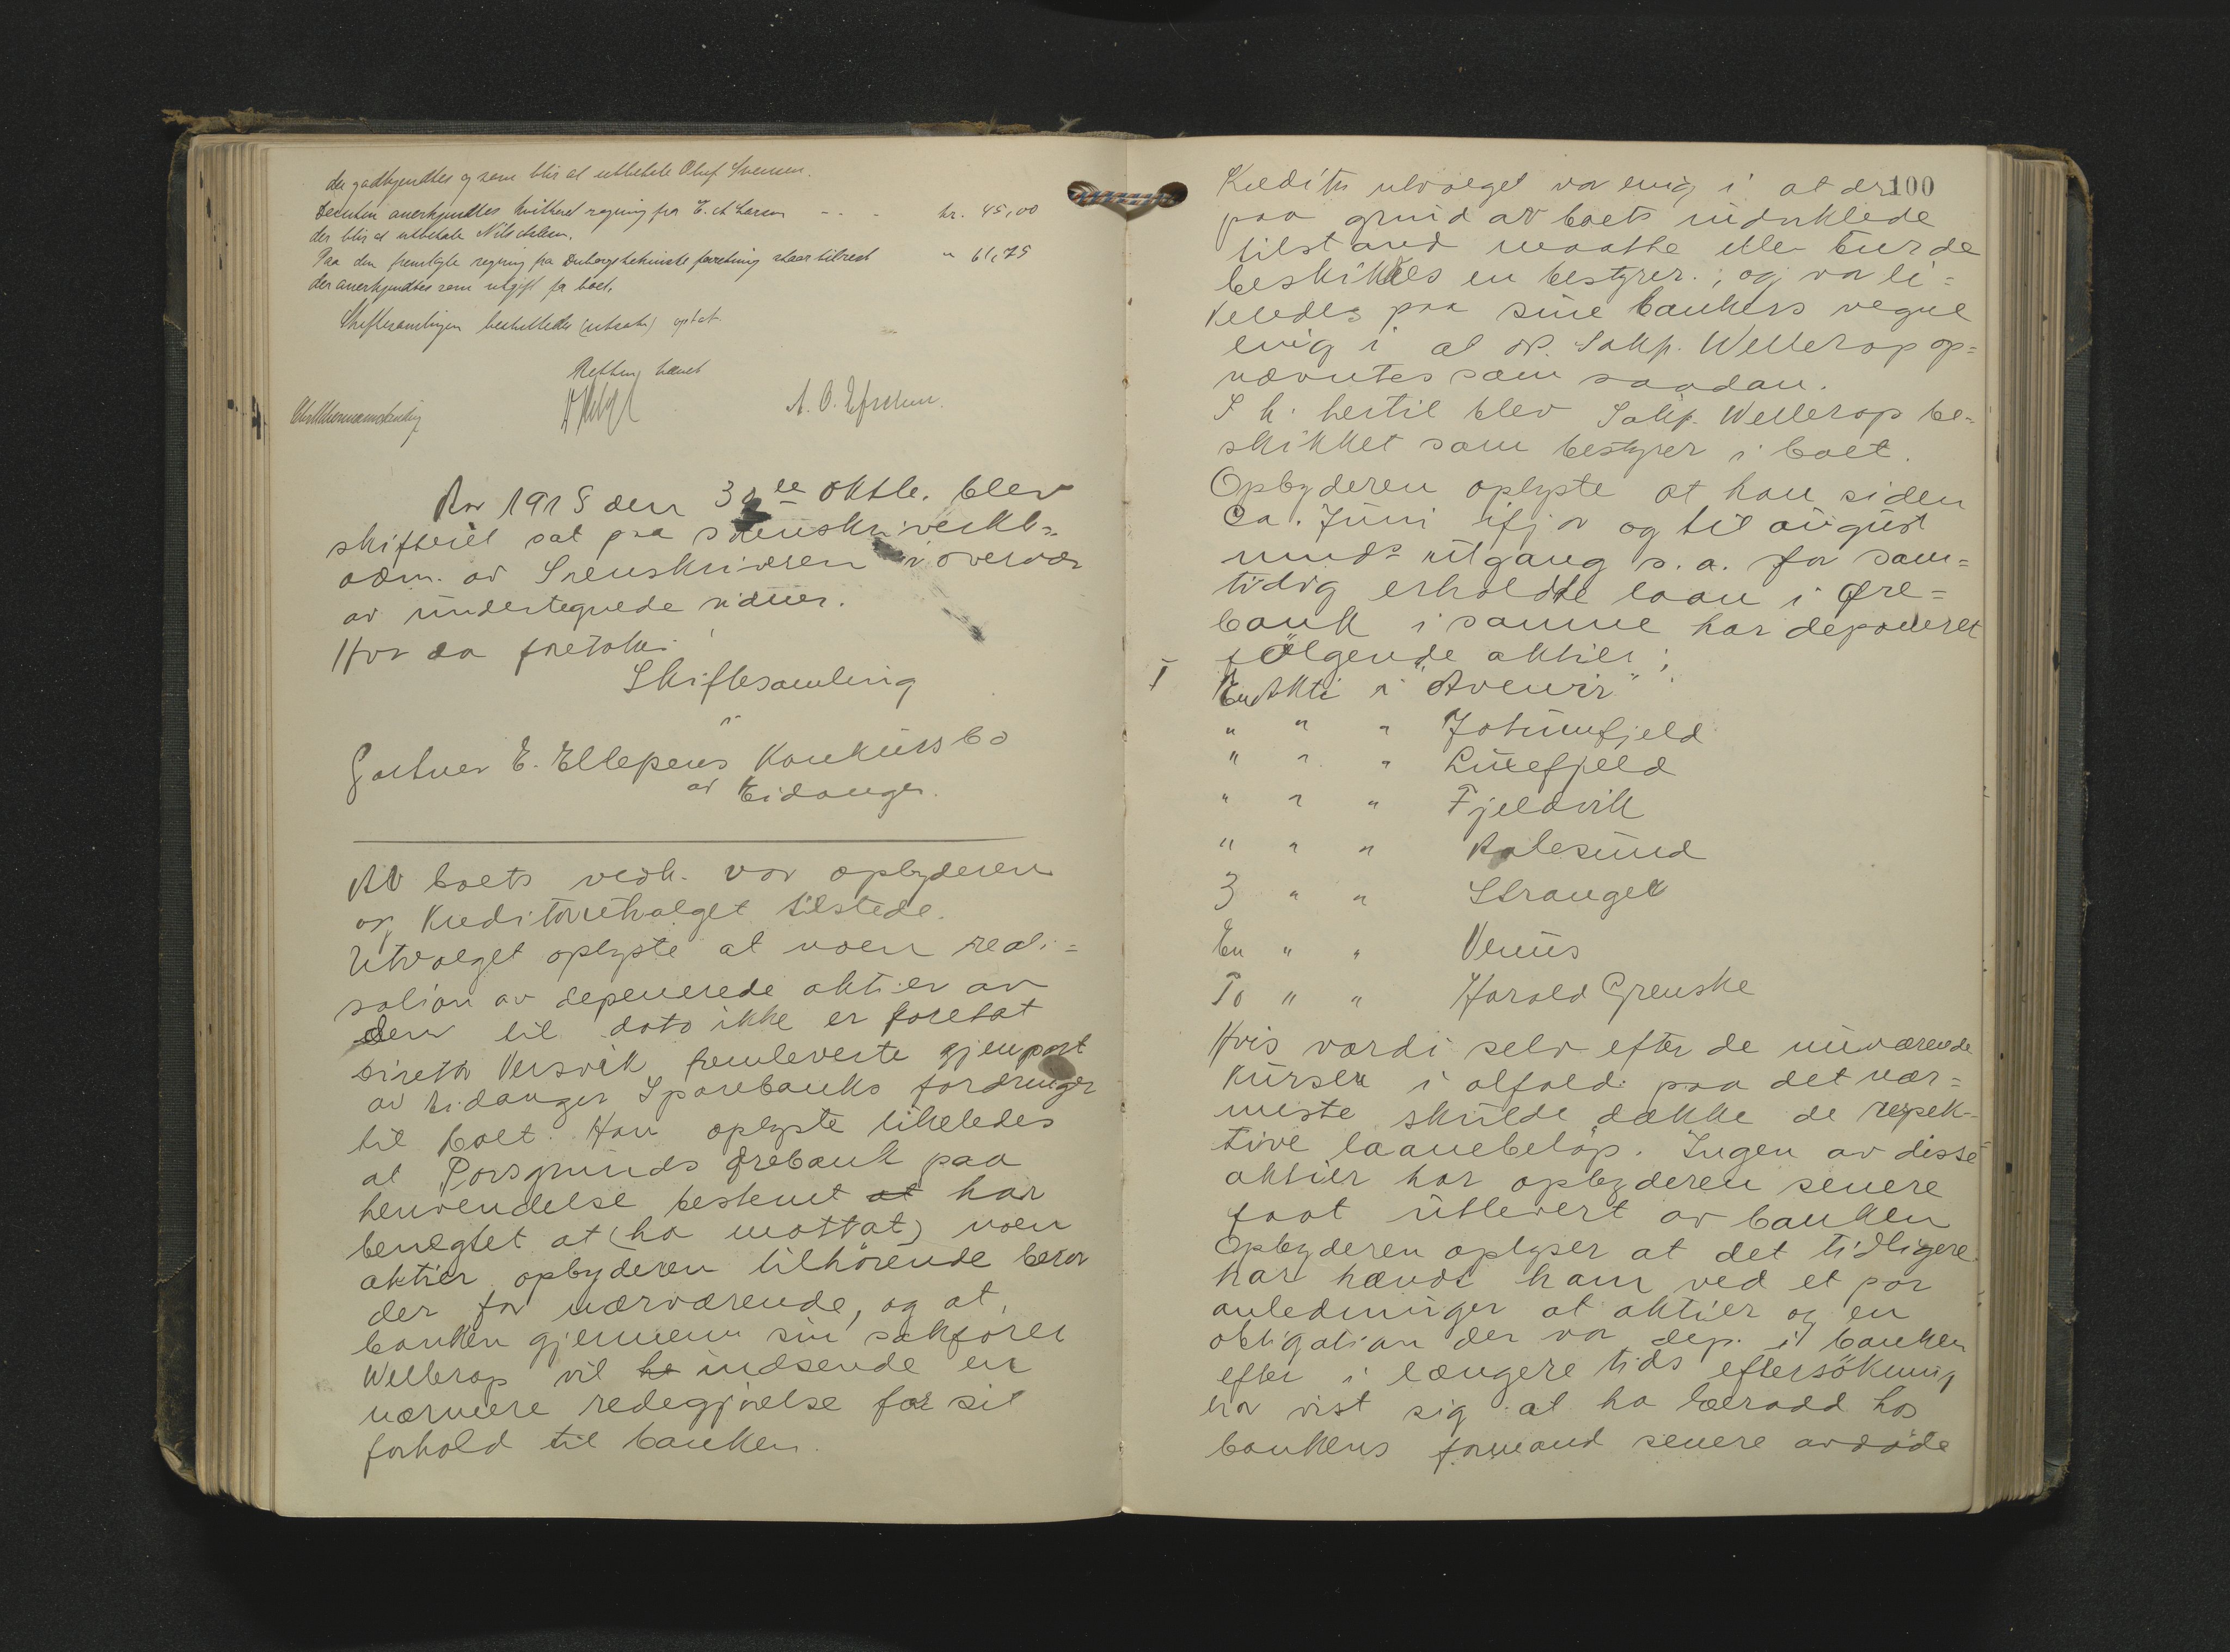 der godkjendtes og som blir at utbetale Oluf Svensen.
Desuten anerkjendtes kvittert regning fra E. A. Larsen - - - kr. 45,00
der blir at utbetale Nils
Paa den fremlagte regning fra forretning staar tilrest " 61,75
der anerkjendtes som utgift for boet.
Skiftesamlingen besluttedes (utsat) optat.
Retten hævet
Aar 1915 den 30 te oktbr. blev
skifteret sat paa Sorenskriverkt=
adm. av Sorenskriveren i overvær
av undertegnede vidner.
Hvor da foretokes:
Skiftesamling
i
Gartner E. Ellepens Konkursbo
av Eidanger.
Av boets vedk. var opbyderen
og Kreditorutvalget tilstede.
Utvalget oplyste at noen reali=
sation av deponerede aktier av
dem til dato ikke er foretat
Direktr Versvik fremleverte gjenpart
av Eidanger Sparebanks fordringer
til boet. Han oplyste likeledes
at Porsgrunds Ørebank paa
henvendelse bestemt at har
benegtet at (ha mottat) noen
aktier opbyderen tilhørende beror
der for nærværende, og at
banken gjennem sin sakfører
Wellerop vil he indsende en
nærmere redegjørelse for sit
forhold til banken.
100
Kreditr utvalget var enig i at der
paa grund av boets indviklede
tilstand maatte eller burde
beskikkes en bestyrer; og var li=
keledes paa sine bankers vegne
enig i at OR. Sakf. Wellerop op=
nævntes som saadan.
I h. hertil blev Sakf. Wellerop be=
skikket som bestyrer i boet.
Opbyderen oplyste at han siden
Ca. Juni ifjor og til august
mnds utgang s. a. for sam=
tidig erholdte laan i Øre=
bank i samme har deponeret
følgende aktier:
I En Akti i "Avenir"
" " " Jotunfjeld
" " " Luefjeld
" " " Fjeldvik
" " " Aalesund
3 " " Stranger
En " " Venus
To " " Harald Grenske
Hvis værdi selv efter de nuværende
Kurser i alfald paa det nær=
meste skulde dække de respek=
tive laanebeløp. Ingen av disse
aktier har opbyderen senere
faat utlevert av banken
Opbyderen oplyser at det tidligere
har hændt ham ved et par
anledninger at aktier og en
obligation der var dep. i banken
efter i længere tids eftersökning
har vist sig at ha beroadd hos
bankens formand senere avdøde